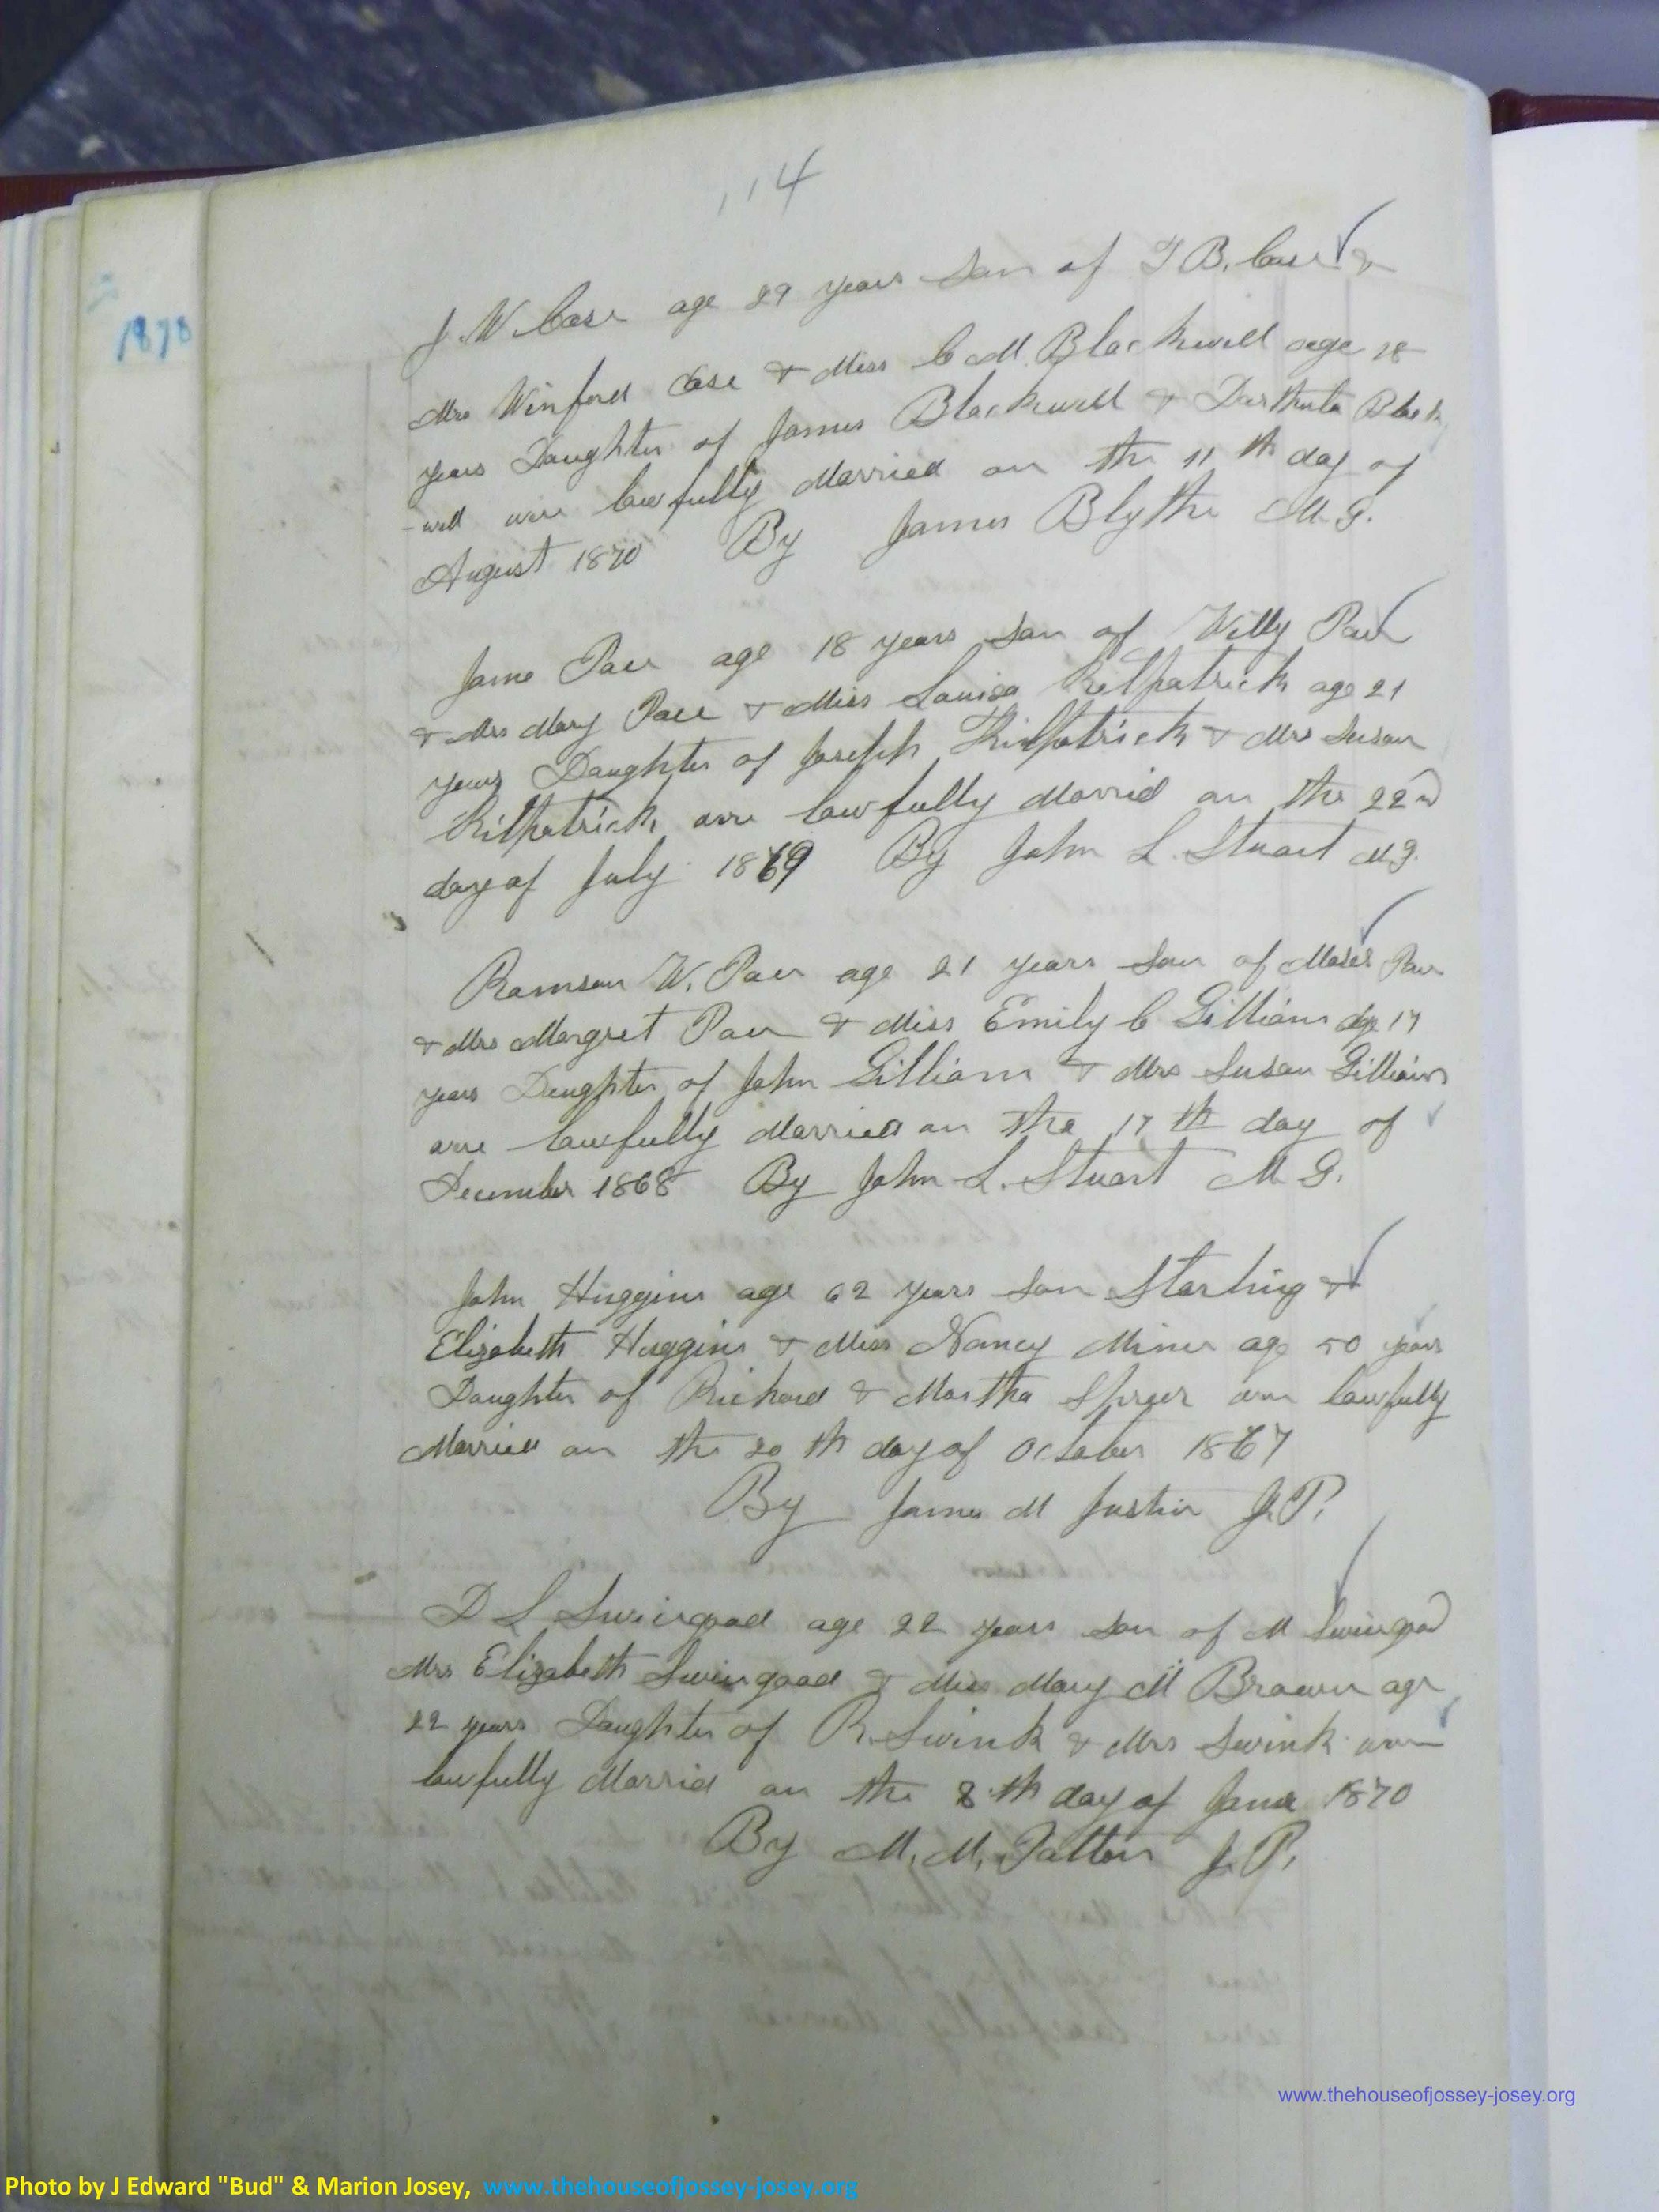 114
1870
J. W. Case age 29 years Son of T B. Case &
Mrs Winford Case & Miss C M. Blackwell age 18
years Daughter of James Blackwell & Darthula Black
-well were lawfully Married on the 11th day of
August 1870 By James Blythe M. G.
Jame Pace age 18 years Son of Willy Pace
& Mrs Mary Pace & Miss Louisa Kilpatrick age 21
years Daughter of Joseph Kilpatrick & Mrs Susan
Kilpatrick were lawfully Married on the 22nd
day of July 1869 By John L. Stuart M G.
Ramson W. Pace age 21 years Son of Moses Pace
& Mrs Margret Pace & Miss Emily C Gilliam age 17
years Daughter of John Gilliam & Mrs Susan Gilliam
were lawfully Married on the 17th day of
December 1868 By John L. Stuart M G.
John Huggins age 62 years Son Starling &
Elizabeth Huggins & Miss Nancy Miner age 50 years
Daughter of Richard & Martha Speer were lawfully
Married on the 20th day of October 1867
By James M Justin J. P.
D L Swiengood age 22 years Son of M Swiengood
Mrs Elizabeth Swiengood & Miss Mary M Brown age
22 years Daughter of R. Swink & Mrs Swink were
lawfully Married on the 8th day of 1870
By M. M. Patton J. P.
www.thehouseofjossey-josey.org
Photo by J Edward "Bud" & Marion Josey, www.thehouseofjossey-josey.org